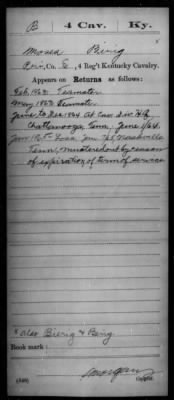 B | 4 Cav. | Ky.
Moses Bieng
Pvt., Co. E, 4 Reg't Kentucky Cavalry.
Appears on Returns as follows:
Feb. 1863 Teamster
May 1863 Teamster
June to Dec 1864 At Cav. Div. H.Q.
Chattanooga, Tenn. June 1/64.
Jan 10th Loss Jan 7/65 Nashville
Tenn, mustered out by reason
of expiration of term of service
x Also Bierig & Being
Book mark:
(546)
Morgan
Copyist.